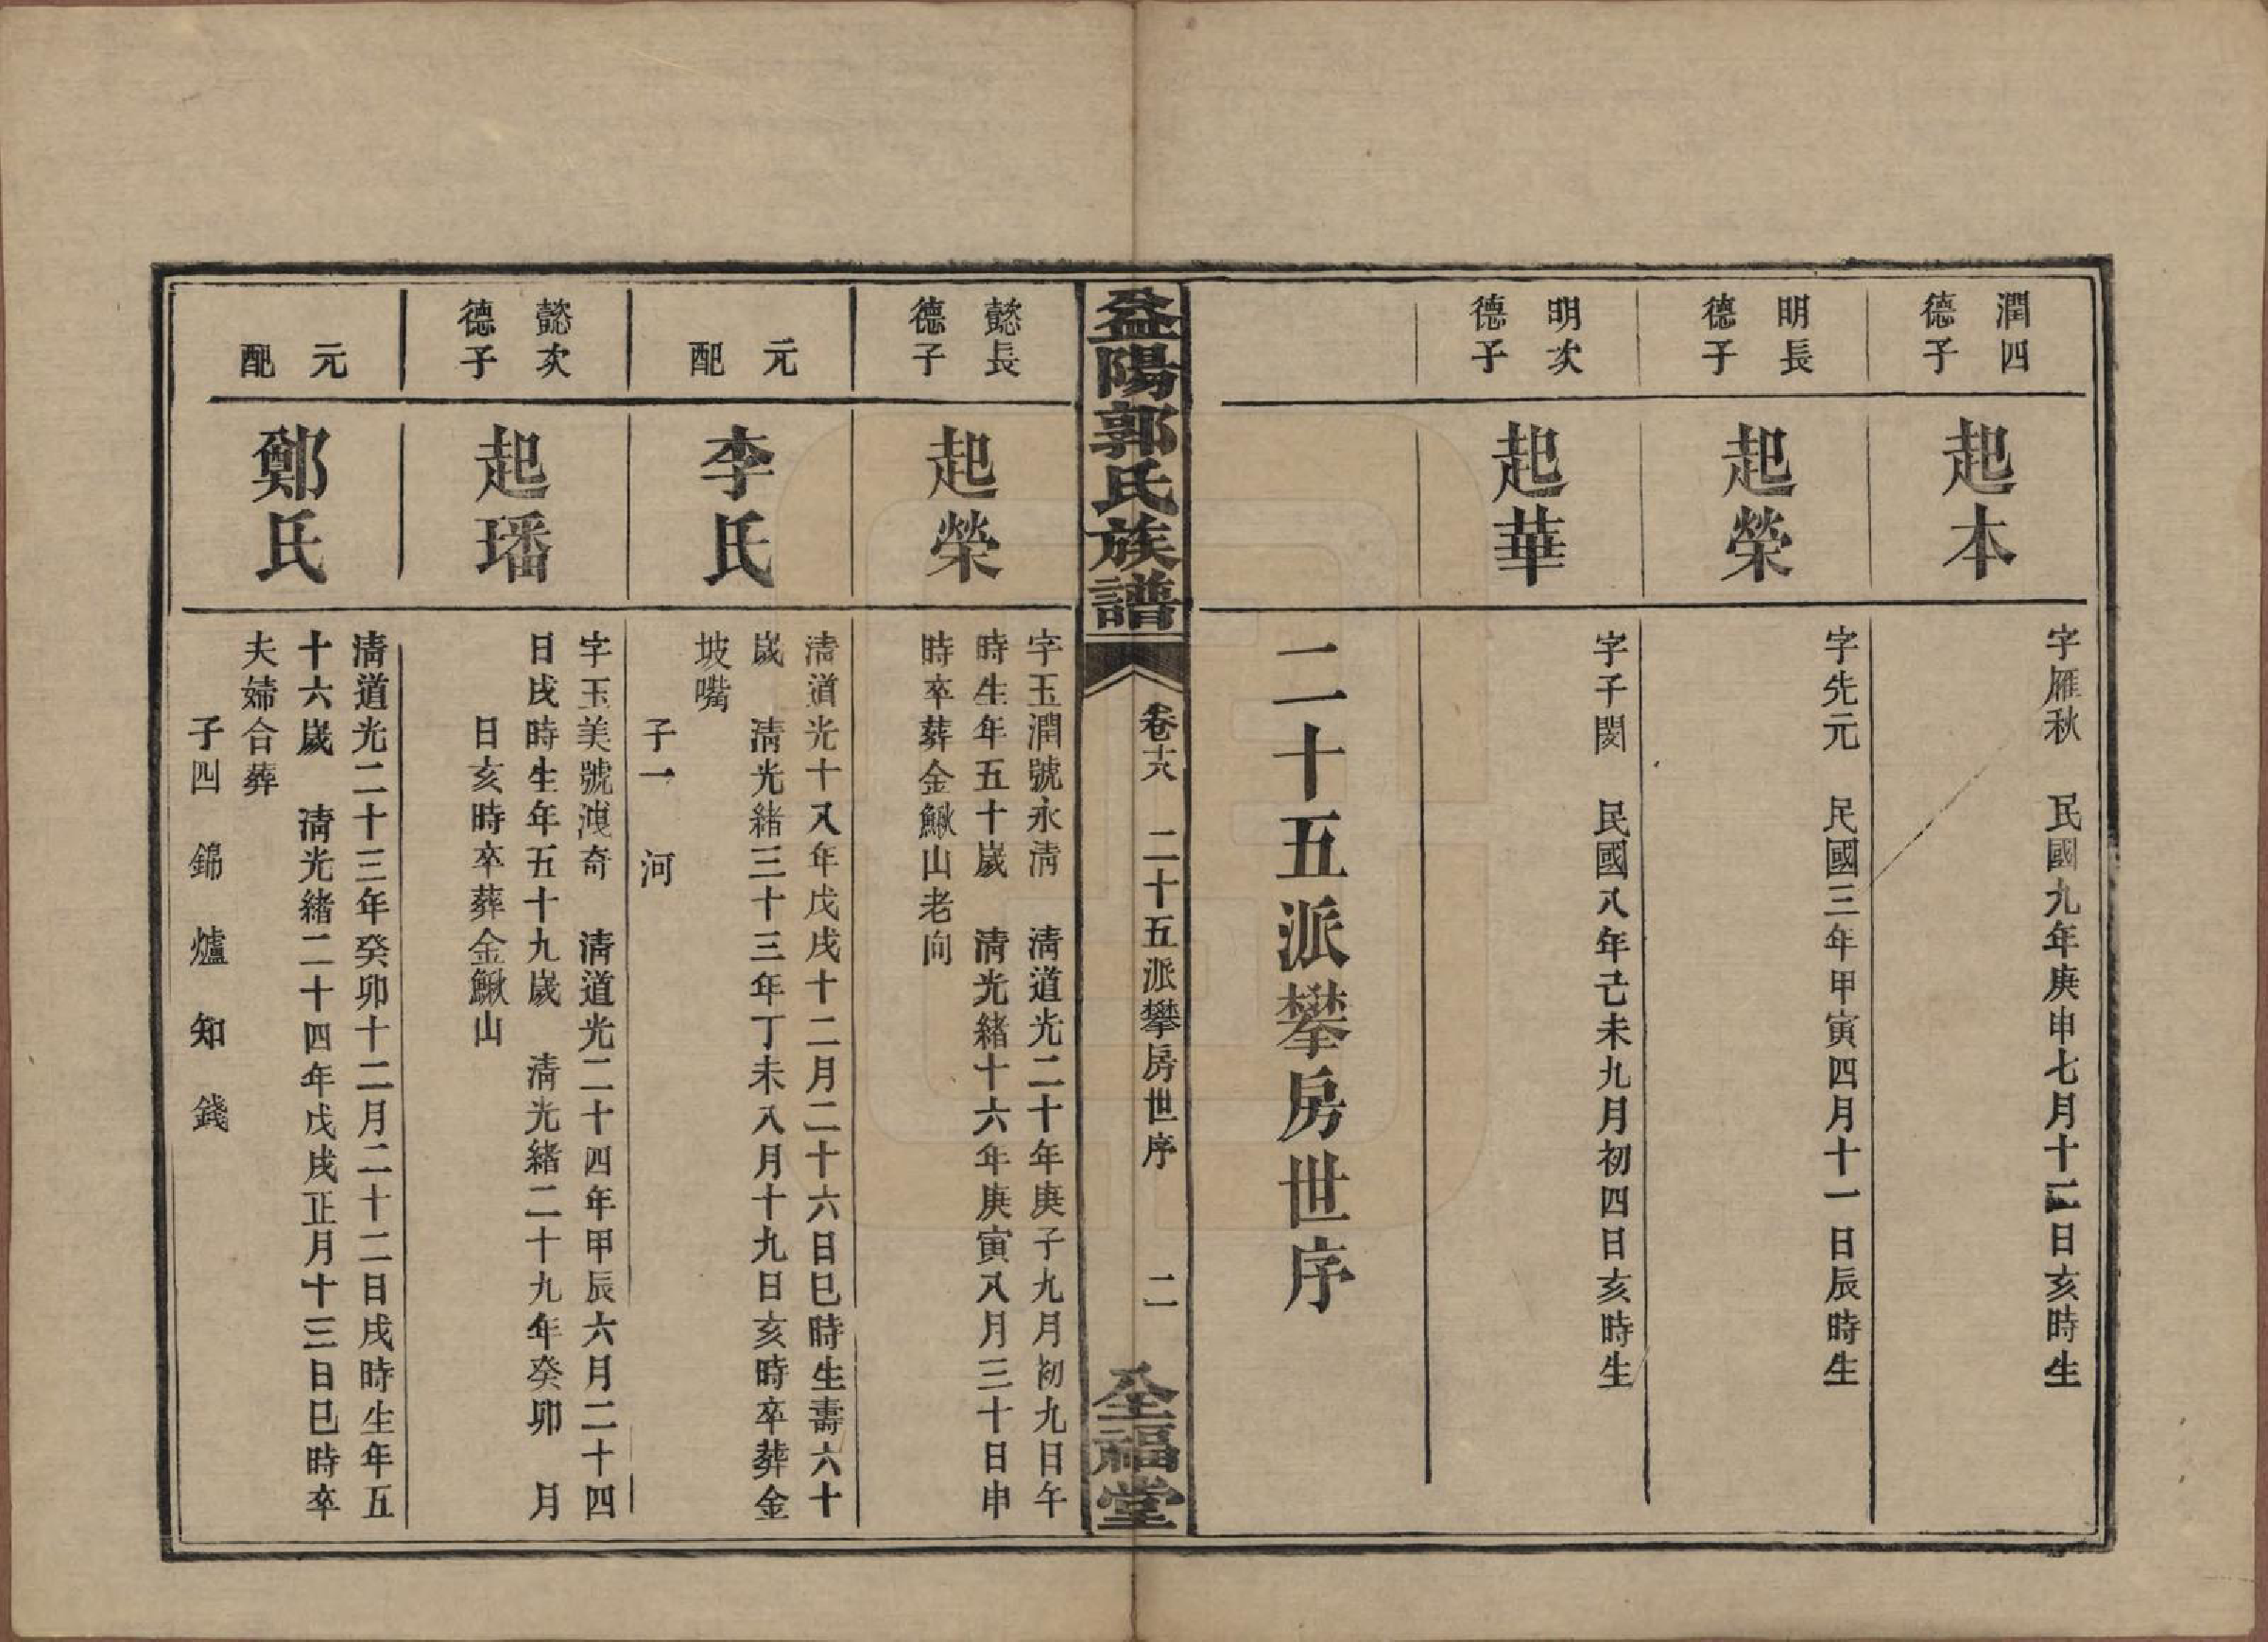 潤四
德子
起本
字雁秋　民國九年庚申七月十二日亥時生
明長
德子
起榮
字先元　民國三年甲寅四月十一日辰時生
明次
德子
起華
字子閔　民國八年己未九月初四日亥時生
二十五派攀房世序
益陽郭氏族譜
卷十六　二十五派攀房世序　二
全福堂
懿長
德子
起榮
字玉潤號永淸　淸道光二十年庚子九月初九日午
時生年五十歲　淸光緒十六年庚寅八月三十日申
時卒葬金鰍山老向
元
配
李氏
淸道光十八年戊戌十二月二十六日巳時生壽六十
歲　淸光緒三十三年丁未八月十九日亥時卒葬金
坡嘴
子一　河
懿次
德子
起璠
字玉美號溭奇　淸道光二十四年甲辰六月二十四
日戌時生年五十九歲　淸光緒二十九年癸卯　月
日亥時卒葬金鰍山
元
配
鄭氏
淸道光二十三年癸卯十二月二十二日戌時生年五
十六歲　淸光緒二十四年戊戌正月十三日巳時卒
夫婦合葬
子四　錦　爐　知　錢